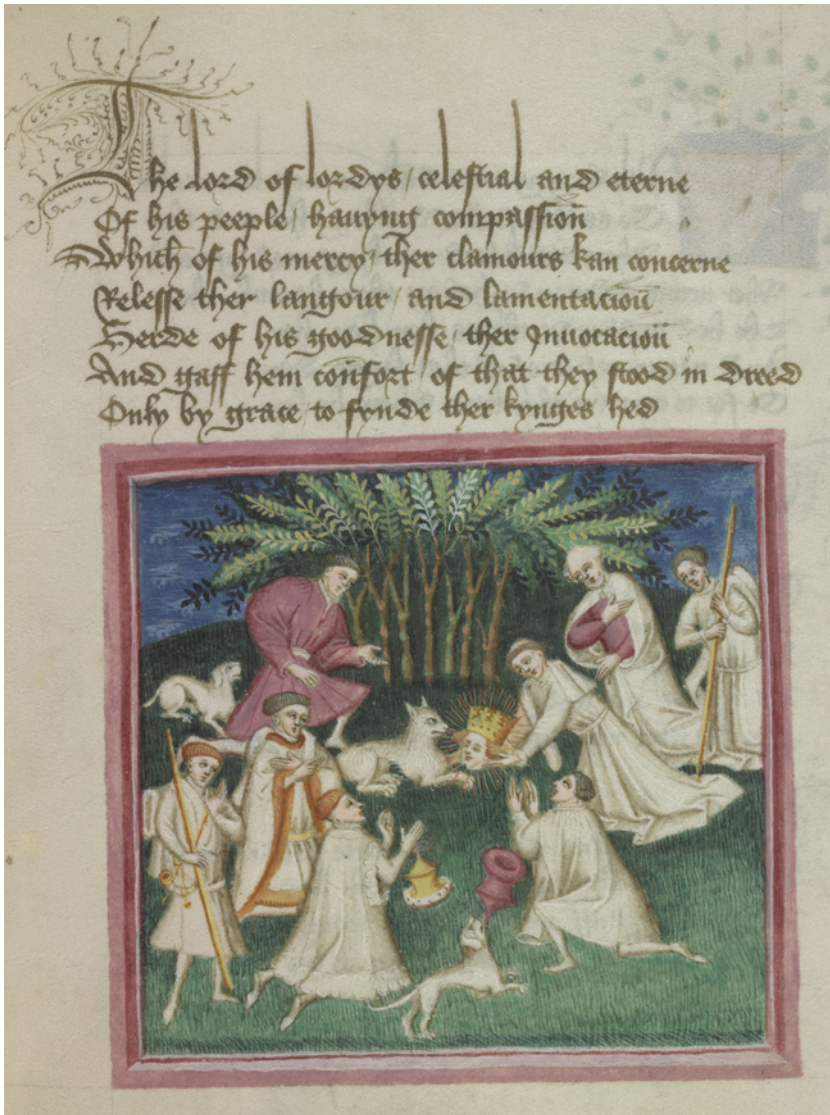 The lord of lordys / celestial and eterne
Of his peeple / hauyng compassioñ
Which of his mercy / ther clamours kan concerne
Relesse ther langour / and lamentacioũ
Herde of his goodnesse / ther Inuocacioũ
And gaff hem coñfort / of that they stood in dreed
Only by grace to fynde ther kynges hed